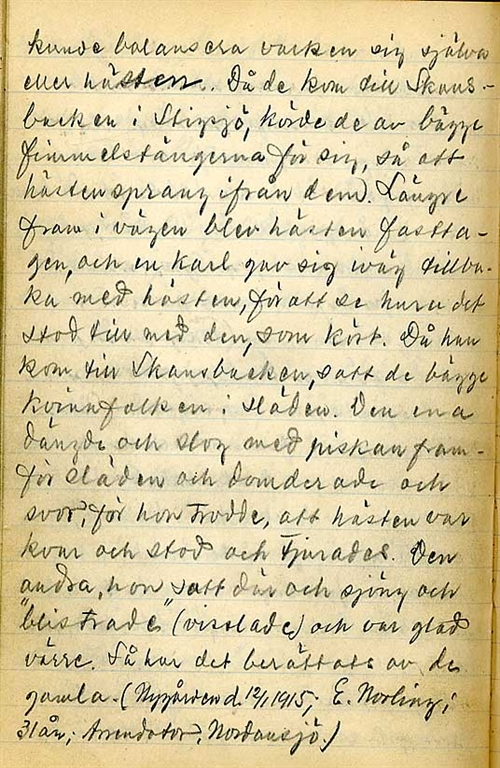 kunde balansera varken sig själva
eller hästen. Då de kom till Skans-
backen i Stigsjö, körde de av bägge
fimmelstängerna för sig, så att
hästen sprang ifrån dem. Längre
fram i vägen blev hästen fastta-
gen, och en karl gav sig iväg tillba-
ka med hästen, för att se huru det
stod till med den, som kört. Då han
kom till Skansbacken, satt de bägge
kvinnfolken i släden. Den ena
dängde och slog med piskan fram-
för släden och domderade och
svor, för hon trodde, att hästen var
kvar och stod och tjurades. Den
andra, hon satt där och sjöng och
"blistrade" (visslade) och var glad
värre. Så har det berättats av de
gamla. (Nygården d. 12/1 1915; E. Norling;
31 år; Arrendator, Nordansjö.)